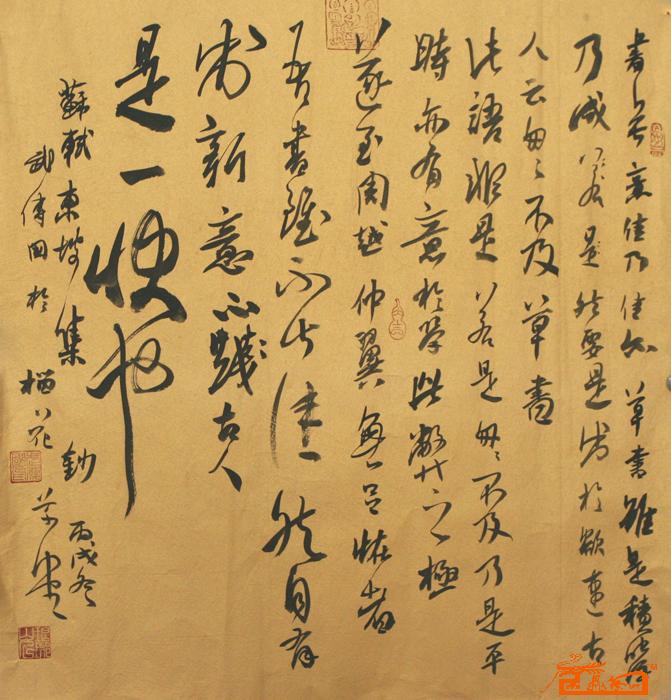 書無意佳乃佳尔草書雖是積學
乃成若是然要是出於欲速古
人云匆匆不及草書
此語非是若是匆匆不及乃是平
時亦有意於學此弊之極
遂至周越仲翼無足怪者
吾書雖不甚佳然自有
出新意不踐古人
是一快也
蘇軾東坡集鈔丙戌冬
武傳國於榴花草堂